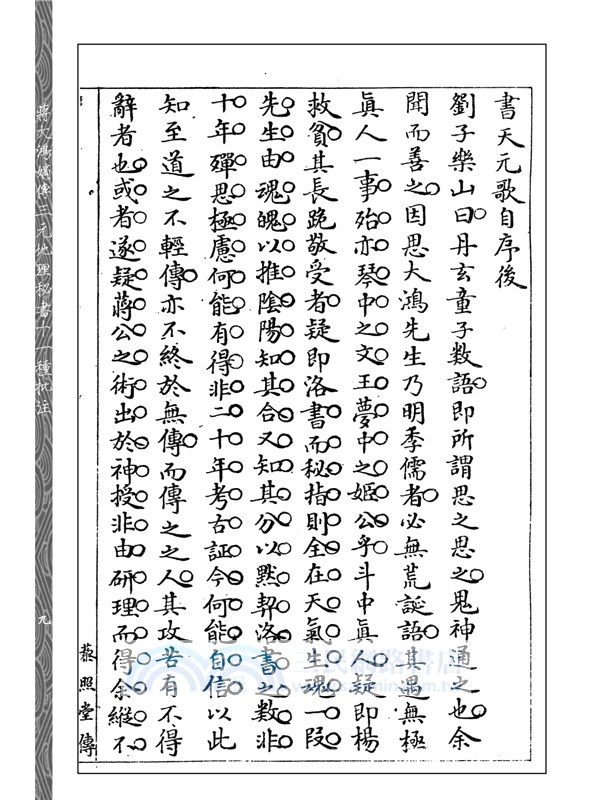 書天元歌自序後
劉子樂山曰丹玄童子数語即所謂思之思之鬼神通之也余
聞而善之因思大鴻先生乃明季儒者必無荒誕語其遇無極
真人一事殆亦琴中之文王夢中之姬公乎斗中真人疑即楊
救貧其長跪敬受者疑即洛書而秘指則全在天氣生魂一段
先生由魂魄以推陰陽知其合又知其分以默契洛書之数非
十年殫思極慮何能有得非二十年考古証今何能自信以此
知至道之不輕傳亦不終於無傳而傳之之人其攻苦有不得
辭者也或者遂疑蔣公之術出於神授非由研理而得余縱不
蔡照堂傳
蔣大鴻嫡傳三元地理秘書十一種批注
九
三民網路書店